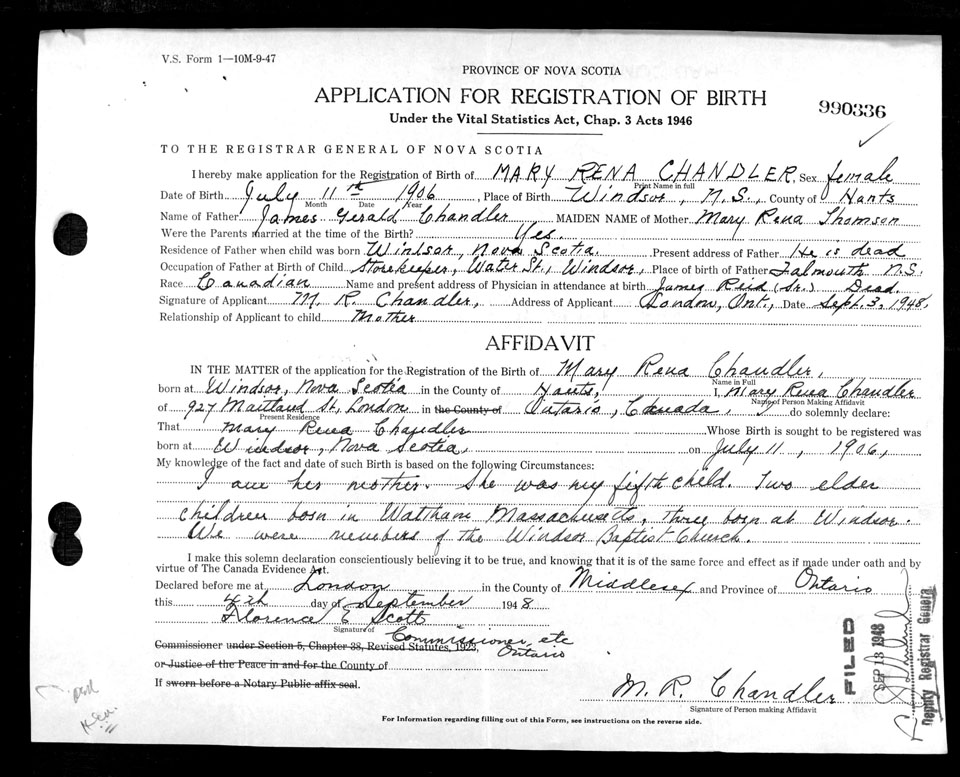 V.S. Form 1—10M-9-47
PROVINCE OF NOVA SCOTIA
APPLICATION FOR REGISTRATION OF BIRTH
990336
Under the Vital Statistics Act, Chap. 3 Acts 1946
TO THE REGISTRAR GENERAL OF NOVA SCOTIA
I hereby make application for the Registration of Birth of MARY RENA CHANDLER Sex female
Print Name in full
Date of Birth July 11th 1906, Place of Birth Windsor, N.S., County of Hants
Month Date Year
Name of Father James Gerald Chandler MAIDEN NAME of Mother Mary Rena Thomson
Were the Parents married at the time of the Birth? Yes.
Residence of Father when child was born Windsor, Nova Scotia. Present address of Father He is dead
Occupation of Father at Birth of Child Storekeeper, Water St., Windsor, Place of birth of Father Falmouth N.S.
Race Canadian Name and present address of Physician in attendance at birth James Reid (Sr.) Dead.
Signature of Applicant M. R. Chandler, Address of Applicant London, Ont., Date Sept. 3, 1948,
Relationship of Applicant to child Mother
AFFIDAVIT
IN THE MATTER of the application for the Registration of the Birth of Mary Rena Chandler,
Name in Full
born at Windsor, Nova Scotia in the County of Hants, I, Mary Rena Chandler
Name of Person Making Affidavit
of 927 Maitland St, London in the County of Ontario, Canada, do solemnly declare:
Present Residence
That Mary Rena Chandler Whose Birth is sought to be registered was
born at Windsor, Nova Scotia, on July 11, 1906,
My knowledge of the fact and date of such Birth is based on the following Circumstances:
I am her mother. She was my fifth child. Two elder
children born in Waltham Massachusetts, three born at Windsor.
We were members of the Windsor Baptist Church.
I make this solemn declaration conscientiously believing it to be true, and knowing that it is of the same force and effect as if made under oath and by
virtue of The Canada Evidence Act.
Declared before me at London in the County of Middlesex and Province of Ontario
this 4th day of September 1948
Florence E Scott
Signature of
Commissioner, etc
Commissioner under Section 5, Chapter 38, Revised Statutes, 1923, Ontario
or Justice of the Peace in and for the County of
If sworn before a Notary Public affix seal.
M. R. Chandler
Signature of Person making Affidavit
For Information regarding filling out of this Form, see instructions on the reverse side.
FILED
SEP 13 1948
Deputy Registrar General